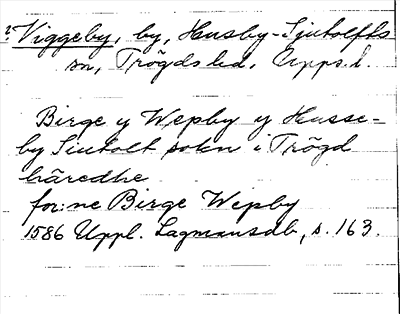 ?Viggeby, by, Husby-Sjutolfts
sn, Trögds hd, Upps. l.
Birge y Wepby y Husse-
by Siutolt sokn i Trögd
häredhe
for:ne Birge Wepby
1586 Uppl. Lagmansdb, s. 163.